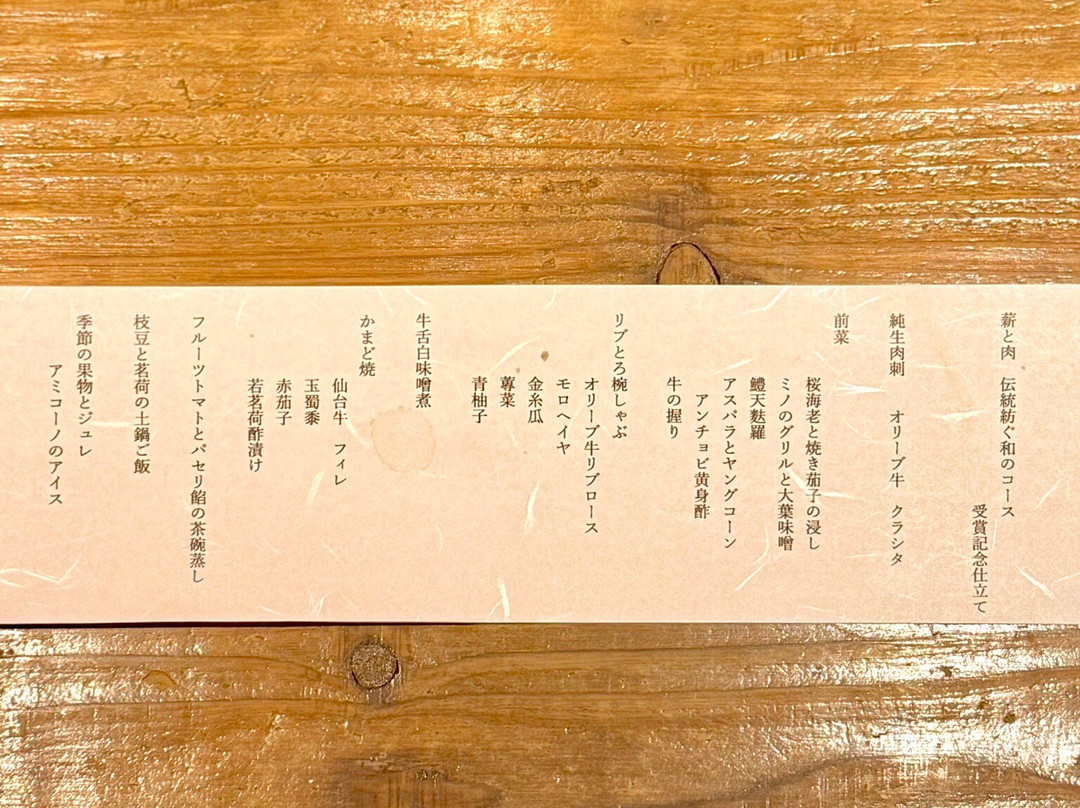 薪と肉　伝統紡ぐ和のコース
受賞記念仕立て
純生肉刺　オリーブ牛　クラシタ
前菜
桜海老と焼き茄子の浸し
ミノのグリルと大葉味噌
鱧天麩羅
アスパラとヤングコーン
アンチョビ黄身酢
牛の握り
リブとろ椀しゃぶ
オリーブ牛リブロース
モロヘイヤ
金糸瓜
蓴菜
青柚子
牛舌白味噌煮
かまど焼
仙台牛　フィレ
玉蜀黍
赤茄子
若茗荷酢漬け
フルーツトマトとパセリ餡の茶碗蒸し
枝豆と茗荷の土鍋ご飯
季節の果物とジュレ
アミコーノのアイス